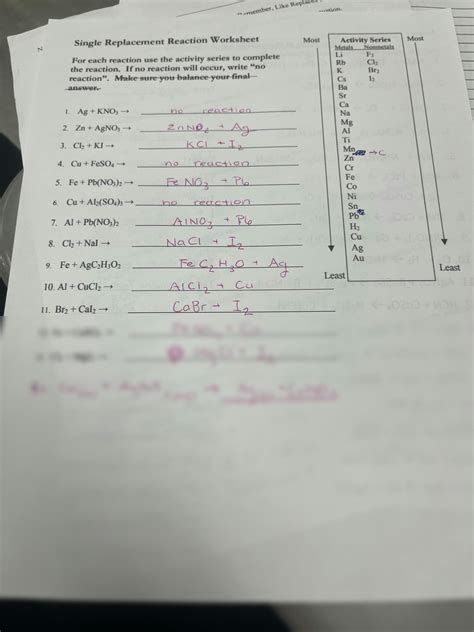 Like Replaces
Single Replacement Reaction Worksheet
For each reaction use the activity series to complete
the reaction. If no reaction will occur, write "no
reaction". Make sure you balance your final
answer.
1. Ag + KNO₃ → no reaction
2. Zn + AgNO₃ → Ag
3. Cl₂ + KI → KCl + I₂
4. Cu + FeSO₄ → no reaction
5. Fe + Pb(NO₃)₂ → Fe NO₃ + Pb
6. Cu + Al₂(SO₄)₃ → no reaction
7. Al + Pb(NO₃)₂ → AlNO₃ + Pb
8. Cl₂ + NaI → NaCl + I₂
9. Fe + AgC₂H₃O₂ → Fe C₂ H₃O + Ag
10. Al + CuCl₂ → AlCl₂ + Cu
11. Br₂ + CaI₂ → CaBr + I₂
Most Activity Series Most
Metals Nonmetals
Li F₂
Rb Cl₂
K Br₂
Cs I₂
Ba
Sr
Ca
Na
Mg
Al
Ti
Mn → C
Zn
Cr
Fe
Co
Ni
Sn
Pb
H₂
Cu
Ag
Au
Least Least